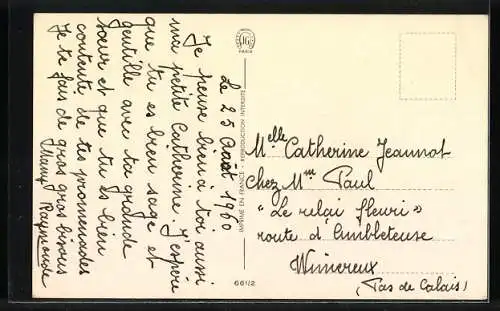 Le 25 Août 1960
Je pense bien à toi aussi
ma petite Catherine. J'espère
que tu es bien sage et
gentille avec ta grande
soeur et que tu es bien
contente de tes promenades
Je te fais de gros gros bisous
Mamy Raymonde
JG
PARIS
IMPRIMÉ EN FRANCE - REPRODUCTION INTERDITE
Melle Catherine Jeannot
chez Mme Paul
"Le relai fleuri"
route d'Ambleteuse
Wimereux
(Pas de Calais)
661/2